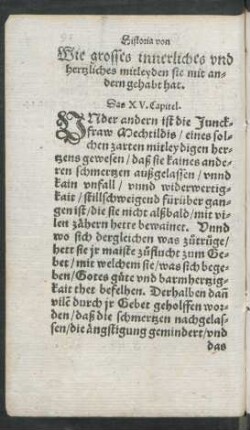 Historia von
Wie grosses innerliches vnd
hertzliches mitleyden sie mit an-
dern gehabt hat.
Das XV. Capitel.
VNder andern ist die Junck-
fraw Mechtildis / eines sol-
chen zarten mitleydigen her-
tzens gewesen / daß sie kaines ande-
ren schmertzen außgelassen / vnnd
kain vnfall / vnnd widerwertig-
kait / stillschweigend fürüber gan-
gen ist / die sie nicht alßbald / mit vi-
len zähern hette bewainet. Vnnd
wo sich dergleichen was zůtrůge /
hett sie jr maiste zůflucht zum Ge-
bet / mit welchem sie / was sich bege-
ben / Gotes gůte vnd barmhertzig-
kait thet befelhen. Derhalben dañ
vilē durch jr Gebet geholffen wor-
den / daß die schmertzen nachgelas-
sen / die ängstigung gemindert / vnd
das